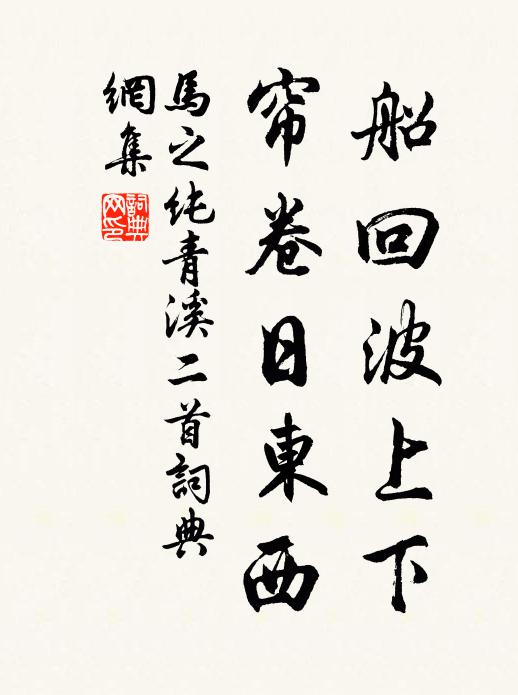 船回波上下
帘卷日東西
馬之纯青溪二首詞典
網集
詞典网印